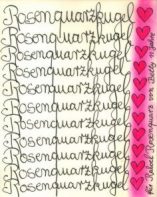 Rosenquarzkugel
Rosenquarzkugel
Rosenquarzkugel
Rosenquarzkugel
Rosenquarzkugel
Rosenquarzkugel
Rosenquarzkugel
Rosenquarzkugel
Rosenquarzkugel
Rosenquarzkugel
Rosenquarzkugel
für Rosenquarz von